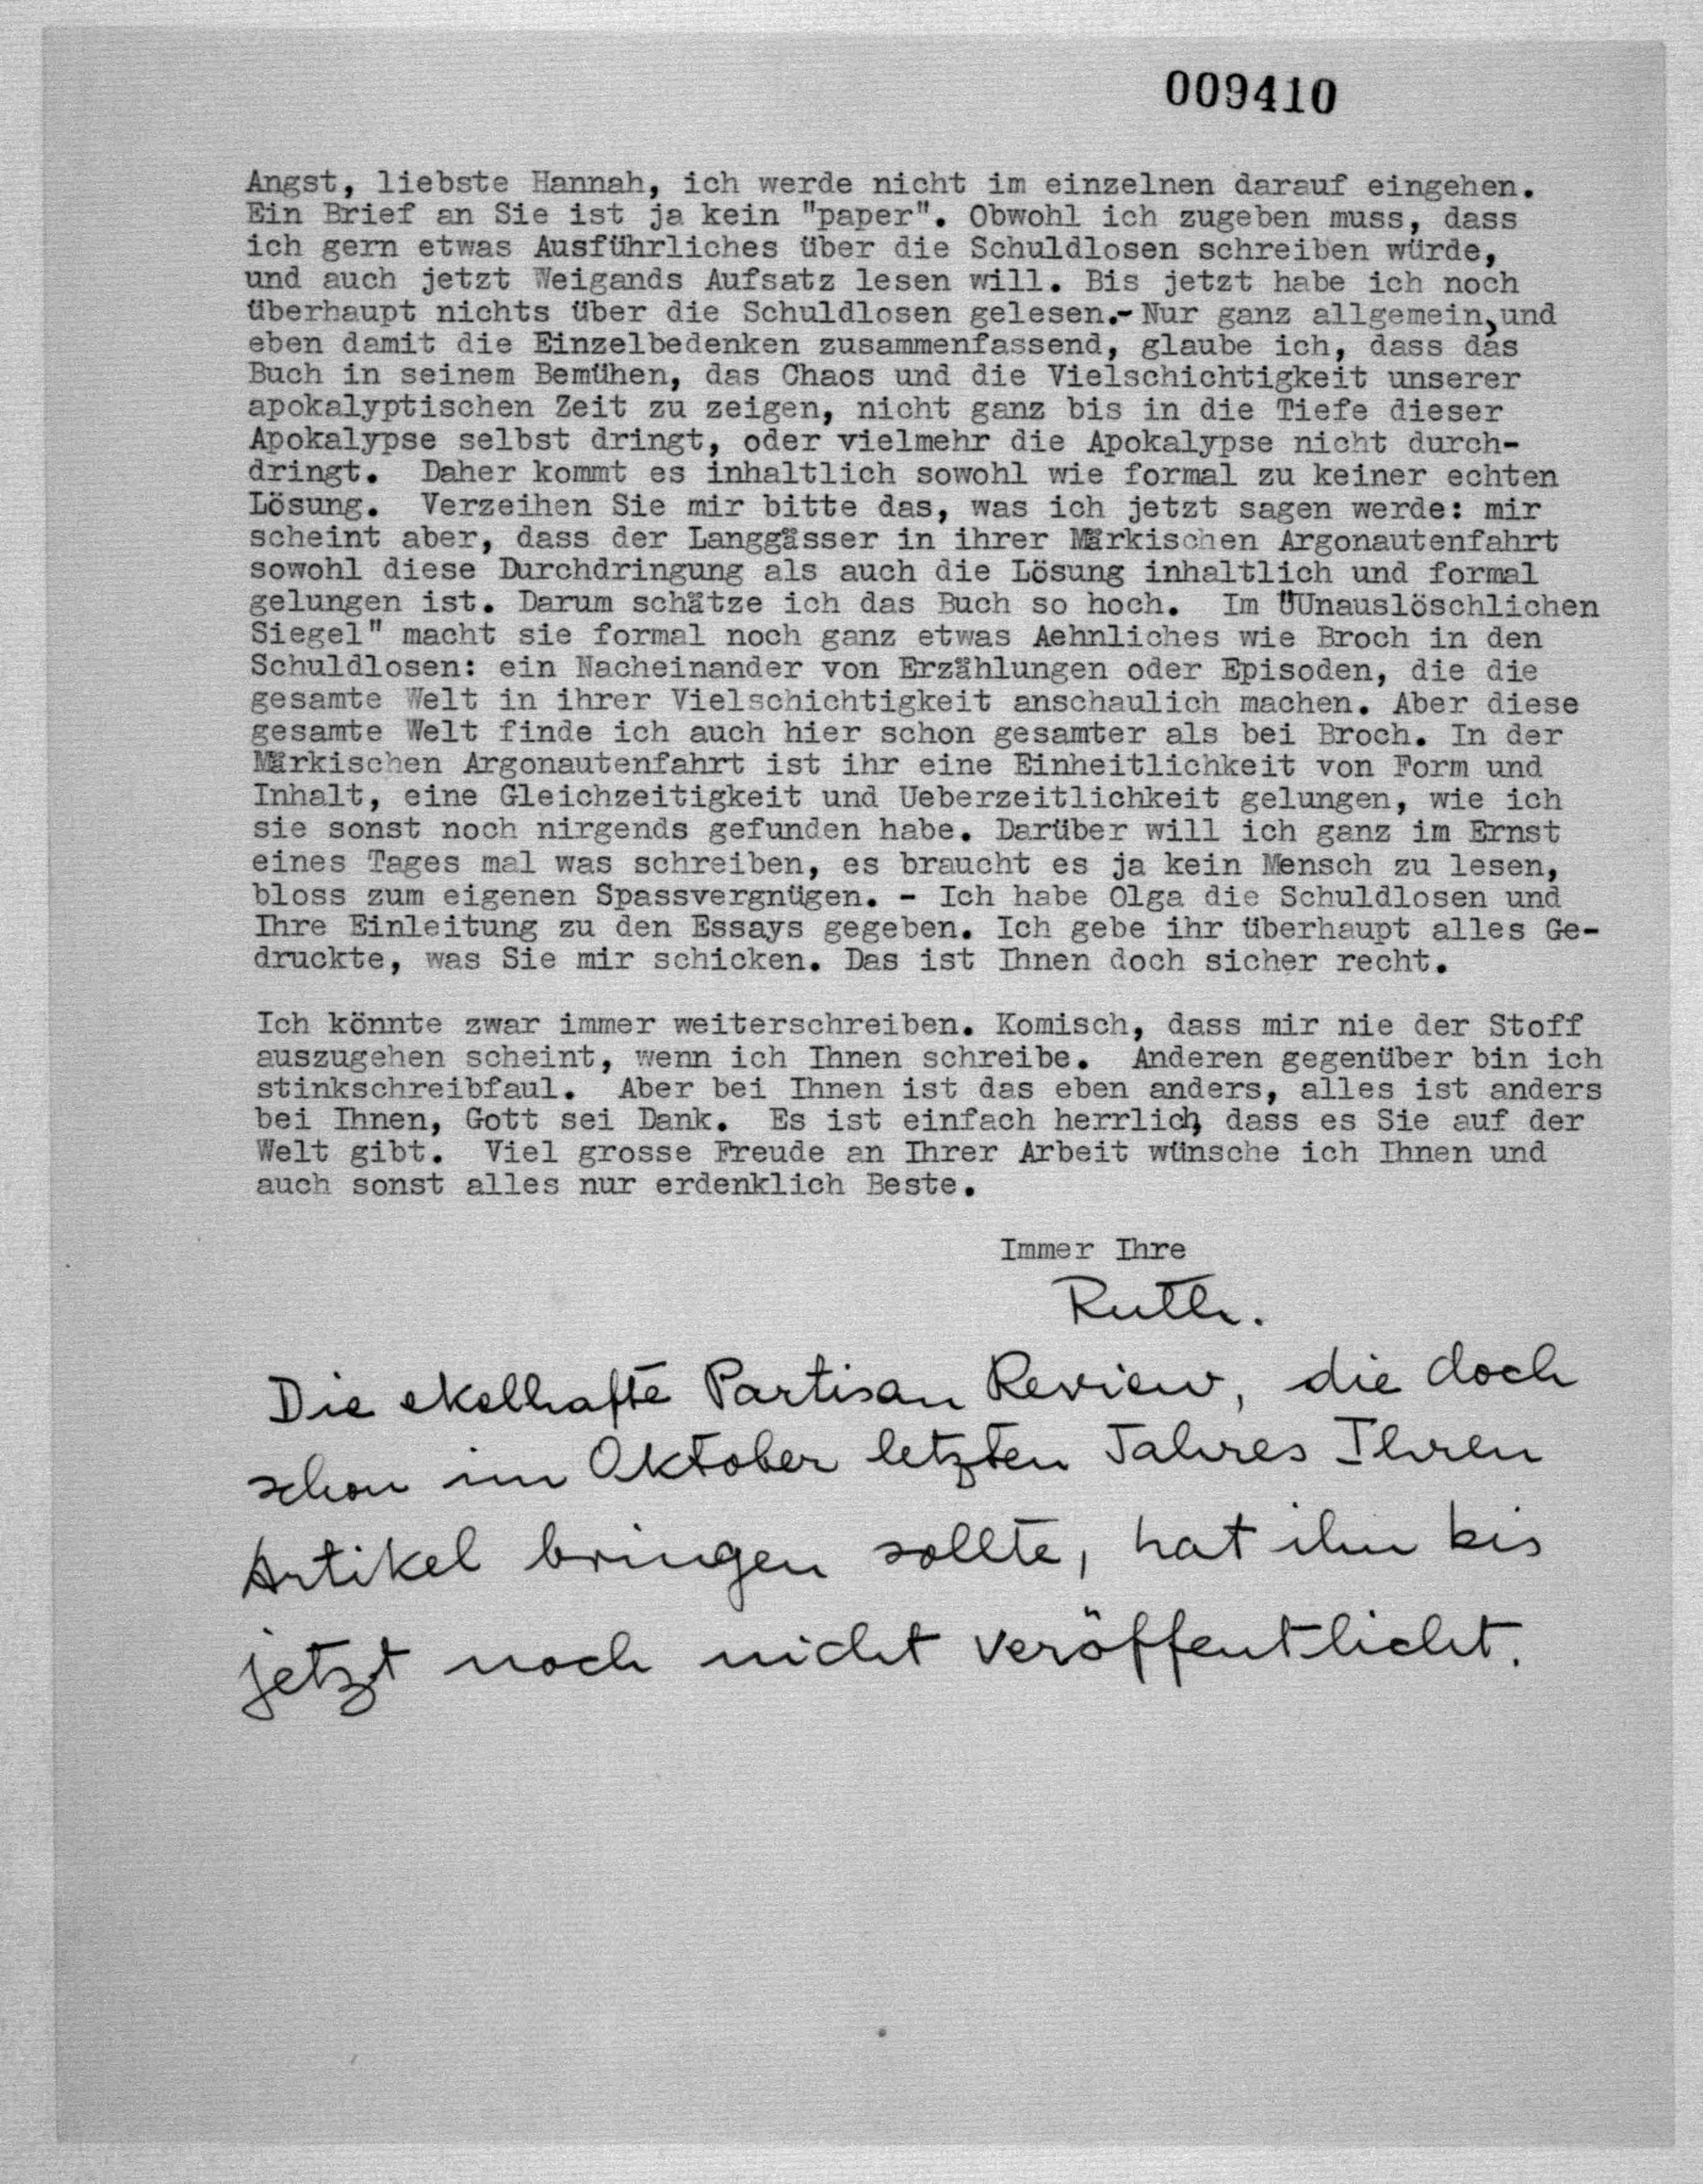 009410
Angst, liebste Hannah, ich werde nicht im einzelnen darauf eingehen.
Ein Brief an Sie ist ja kein "paper". Obwohl ich zugeben muss, dass
ich gern etwas Ausführliches über die Schuldlosen schreiben würde,
und auch jetzt Weigands Aufsatz lesen will. Bis jetzt habe ich noch
überhaupt nichts über die Schuldlosen gelesen.- Nur ganz allgemein, und
eben damit die Einzelbedenken zusammenfassend, glaube ich, dass das
Buch in seinem Bemühen, das Chaos und die Vielschichtigkeit unserer
apokalyptischen Zeit zu zeigen, nicht ganz bis in die Tiefe dieser
Apokalypse selbst dringt, oder vielmehr die Apokalypse nicht durch-
dringt. Daher kommt es inhaltlich sowohl wie formal zu keiner echten
Lösung. Verzeihen Sie mir bitte das, was ich jetzt sagen werde: mir
scheint aber, dass der Langgässer in ihrer Märkischen Argonautenfahrt
sowohl diese Durchdringung als auch die Lösung inhaltlich und formal
gelungen ist. Darum schätze ich das Buch so hoch. Im "Unauslöschlichen
Siegel" macht sie formal noch ganz etwas Aehnliches wie Broch in den
Schuldlosen: ein Nacheinander von Erzählungen oder Episoden, die die
gesamte Welt in ihrer Vielschichtigkeit anschaulich machen. Aber diese
gesamte Welt finde ich auch hier schon gesamter als bei Broch. In der
Märkischen Argonautenfahrt ist ihr eine Einheitlichkeit von Form und
Inhalt, eine Gleichzeitigkeit und Ueberzeitlichkeit gelungen, wie ich
sie sonst noch nirgends gefunden habe. Darüber will ich ganz im Ernst
eines Tages mal was schreiben, es braucht es ja kein Mensch zu lesen,
bloss zum eigenen Spassvergnügen. - Ich habe Olga die Schuldlosen und
Ihre Einleitung zu den Essays gegeben. Ich gebe ihr überhaupt alles Ge-
druckte, was Sie mir schicken. Das ist Ihnen doch sicher recht.
Ich könnte zwar immer weiterschreiben. Komisch, dass mir nie der Stoff
auszugehen scheint, wenn ich Ihnen schreibe. Anderen gegenüber bin ich
stinkschreibfaul. Aber bei Ihnen ist das eben anders, alles ist anders
bei Ihnen, Gott sei Dank. Es ist einfach herrlich, dass es Sie auf der
Welt gibt. Viel grosse Freude an Ihrer Arbeit wünsche ich Ihnen und
auch sonst alles nur erdenklich Beste.
Immer Ihre
Ruth.
Die ekelhafte Partisan Review, die doch
schon im Oktober letzten Jahres Ihren
Artikel bringen sollte, hat ihn bis
jetzt noch nicht veröffentlicht.